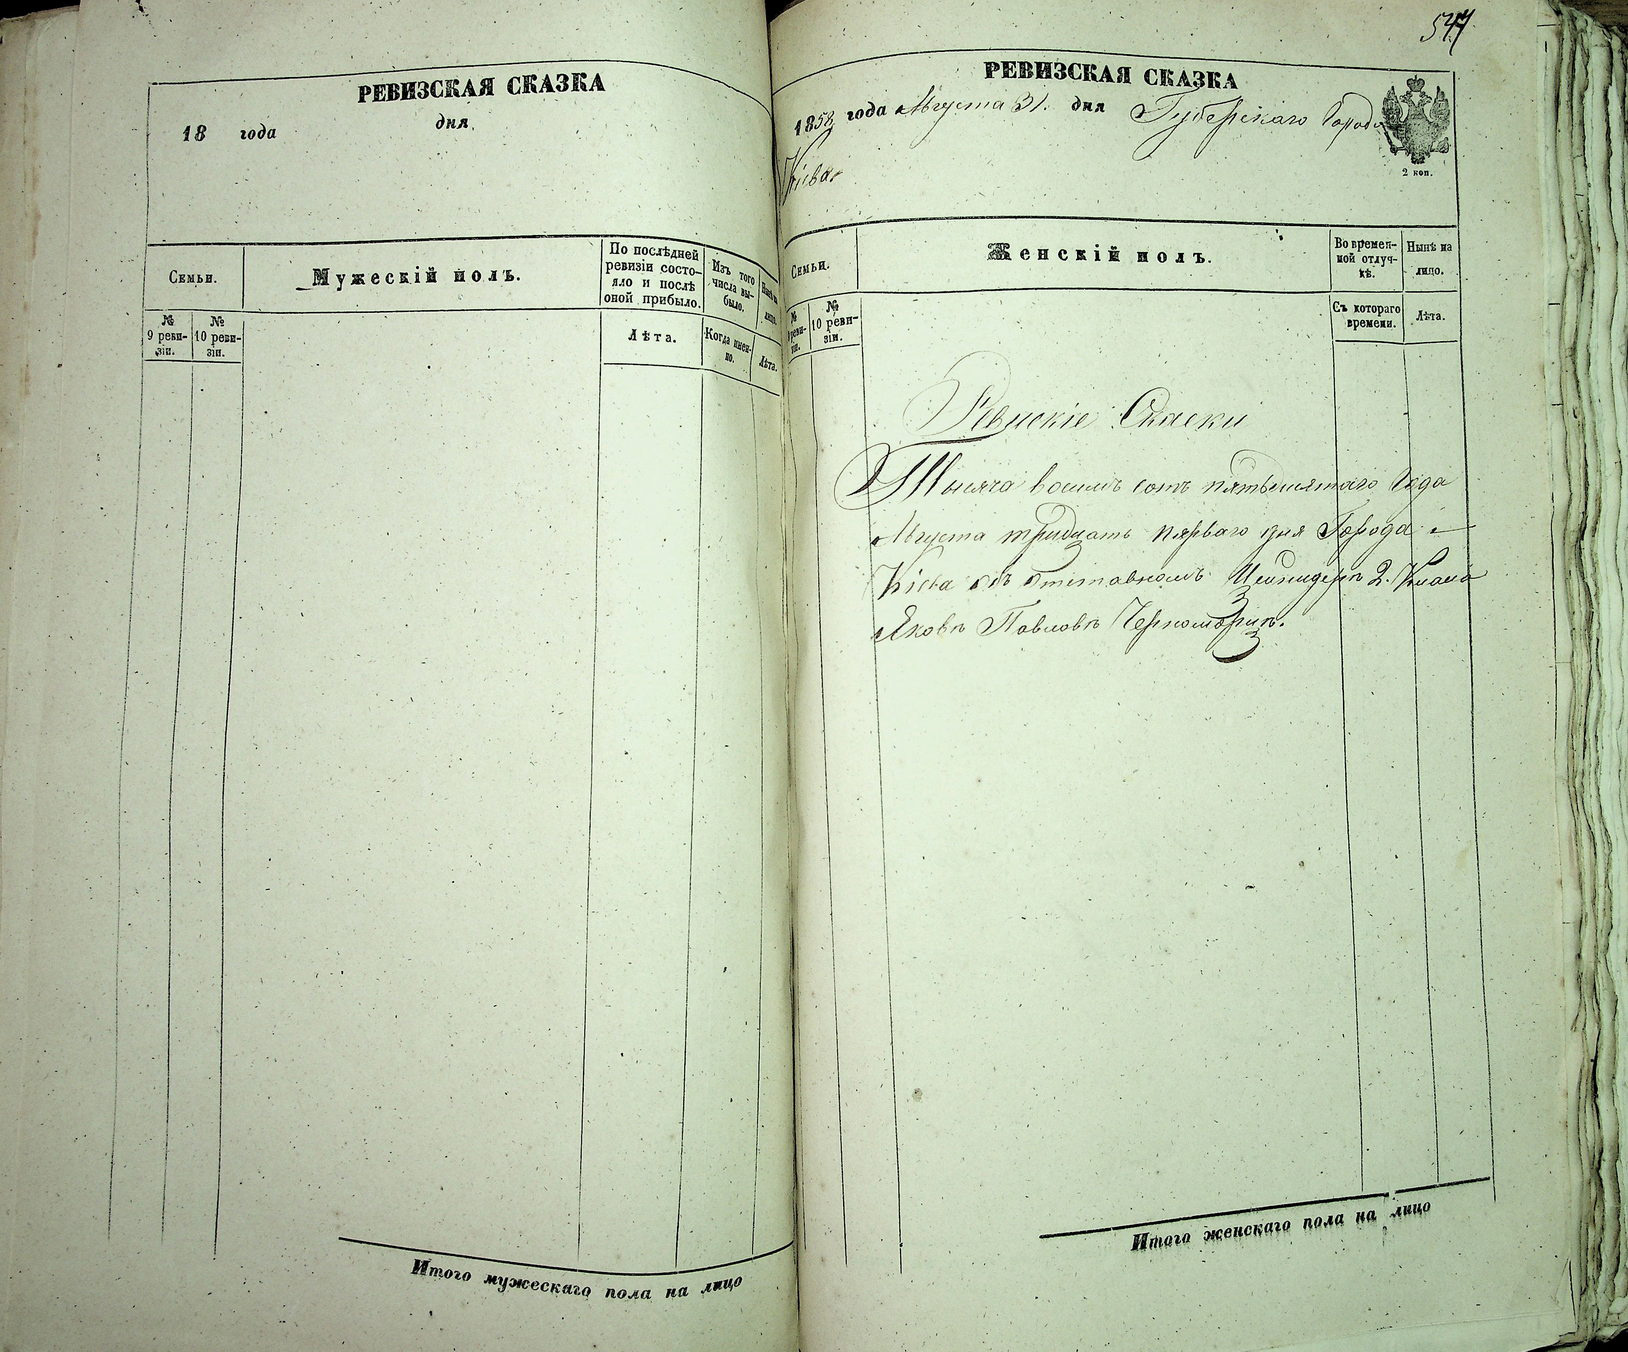 РЕВИЗСКАЯ СКАЗКА
18 года дня
Семьи.
Мужескій полъ.
По послѣдней
ревизіи состо-
яло и послѣ
оной прибыло.
Изъ того
числа вы-
было.
Нынѣ на
лицо.
№
9 реви-
зіи.
№
10 реви-
зіи.
Лѣта.
Когда имен-
но.
Лѣта.
Итого мужескаго пола на лицо
544
РЕВИЗСКАЯ СКАЗКА
1858 года Августа 31. дня Губерскаго Города
Кіева
2 коп.
Семьи.
Женскій полъ.
Во времен-
ной отлуч-
кѣ.
Нынѣ на
лицо.
№
9 реви-
зіи.
№
10 реви-
зіи.
Съ котораго
времени.
Лѣта.
Ревиские Скаски
Тысяча восимъ сотъ пятьдесятаго Года
Августа тридцать перваго дня Города
Кіева отставномъ 2. Класа
Яковъ Павловъ
Итого женскаго пола на лицо